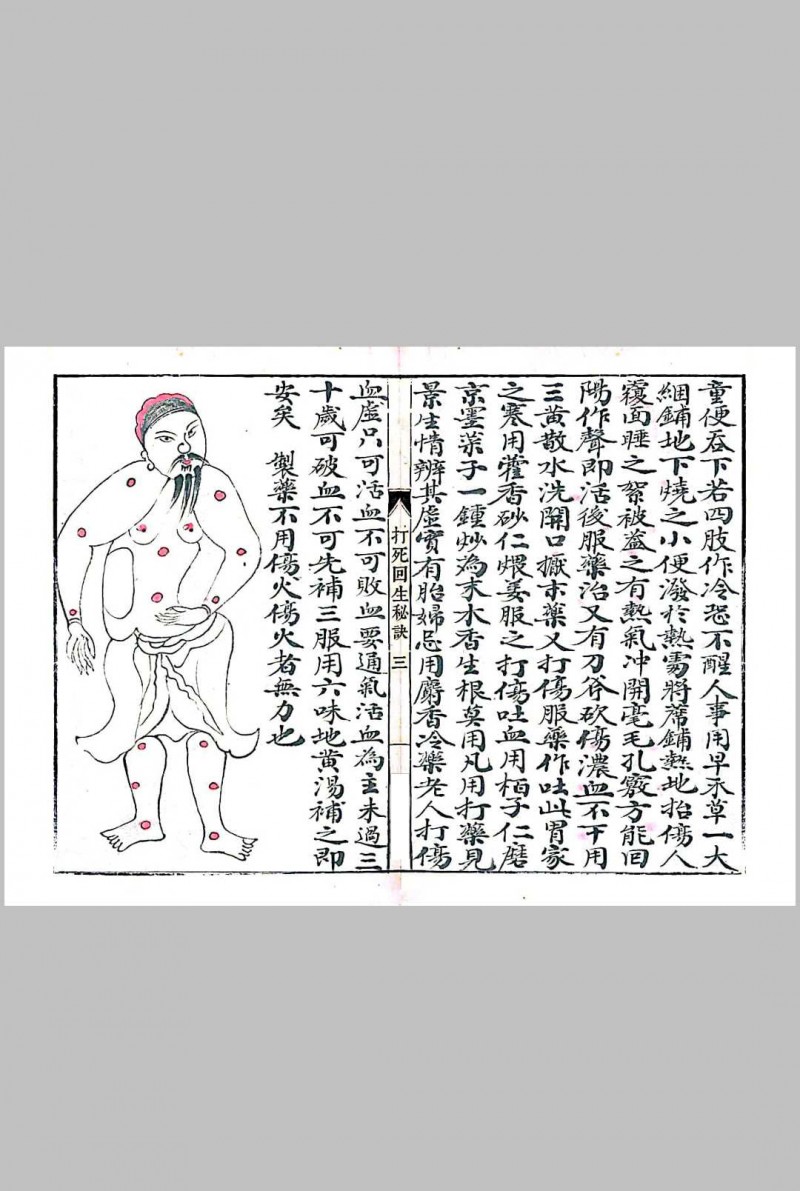 童便吞下若四肢作冷恐不醒人事用早禾草一大
綑鋪地下燒之小便潑於熱處將蓆鋪熱地抬傷人
覆面睡之絮被蓋之有熱氣冲開毫毛孔竅方能回
陽作聲即活後服藥治又有刀斧砍傷濃血不干用
三黄散水洗開口摋末藥又打傷服藥作吐此胃家
之寒用藿香砂仁煨姜服之打傷吐血用栢子仁磨
京墨菜子一鍾炒為末木香生根莫用凡用打藥見
景生情辨其虛實有胎婦忌用麝香冷藥老人打傷
打死回生秘訣 三
血虛只可活血不可敗血要通氣活血為主未過三
十歲可破血不可先補三服用六味地黄湯補之即
安矣 製藥不用傷火傷火者無力也